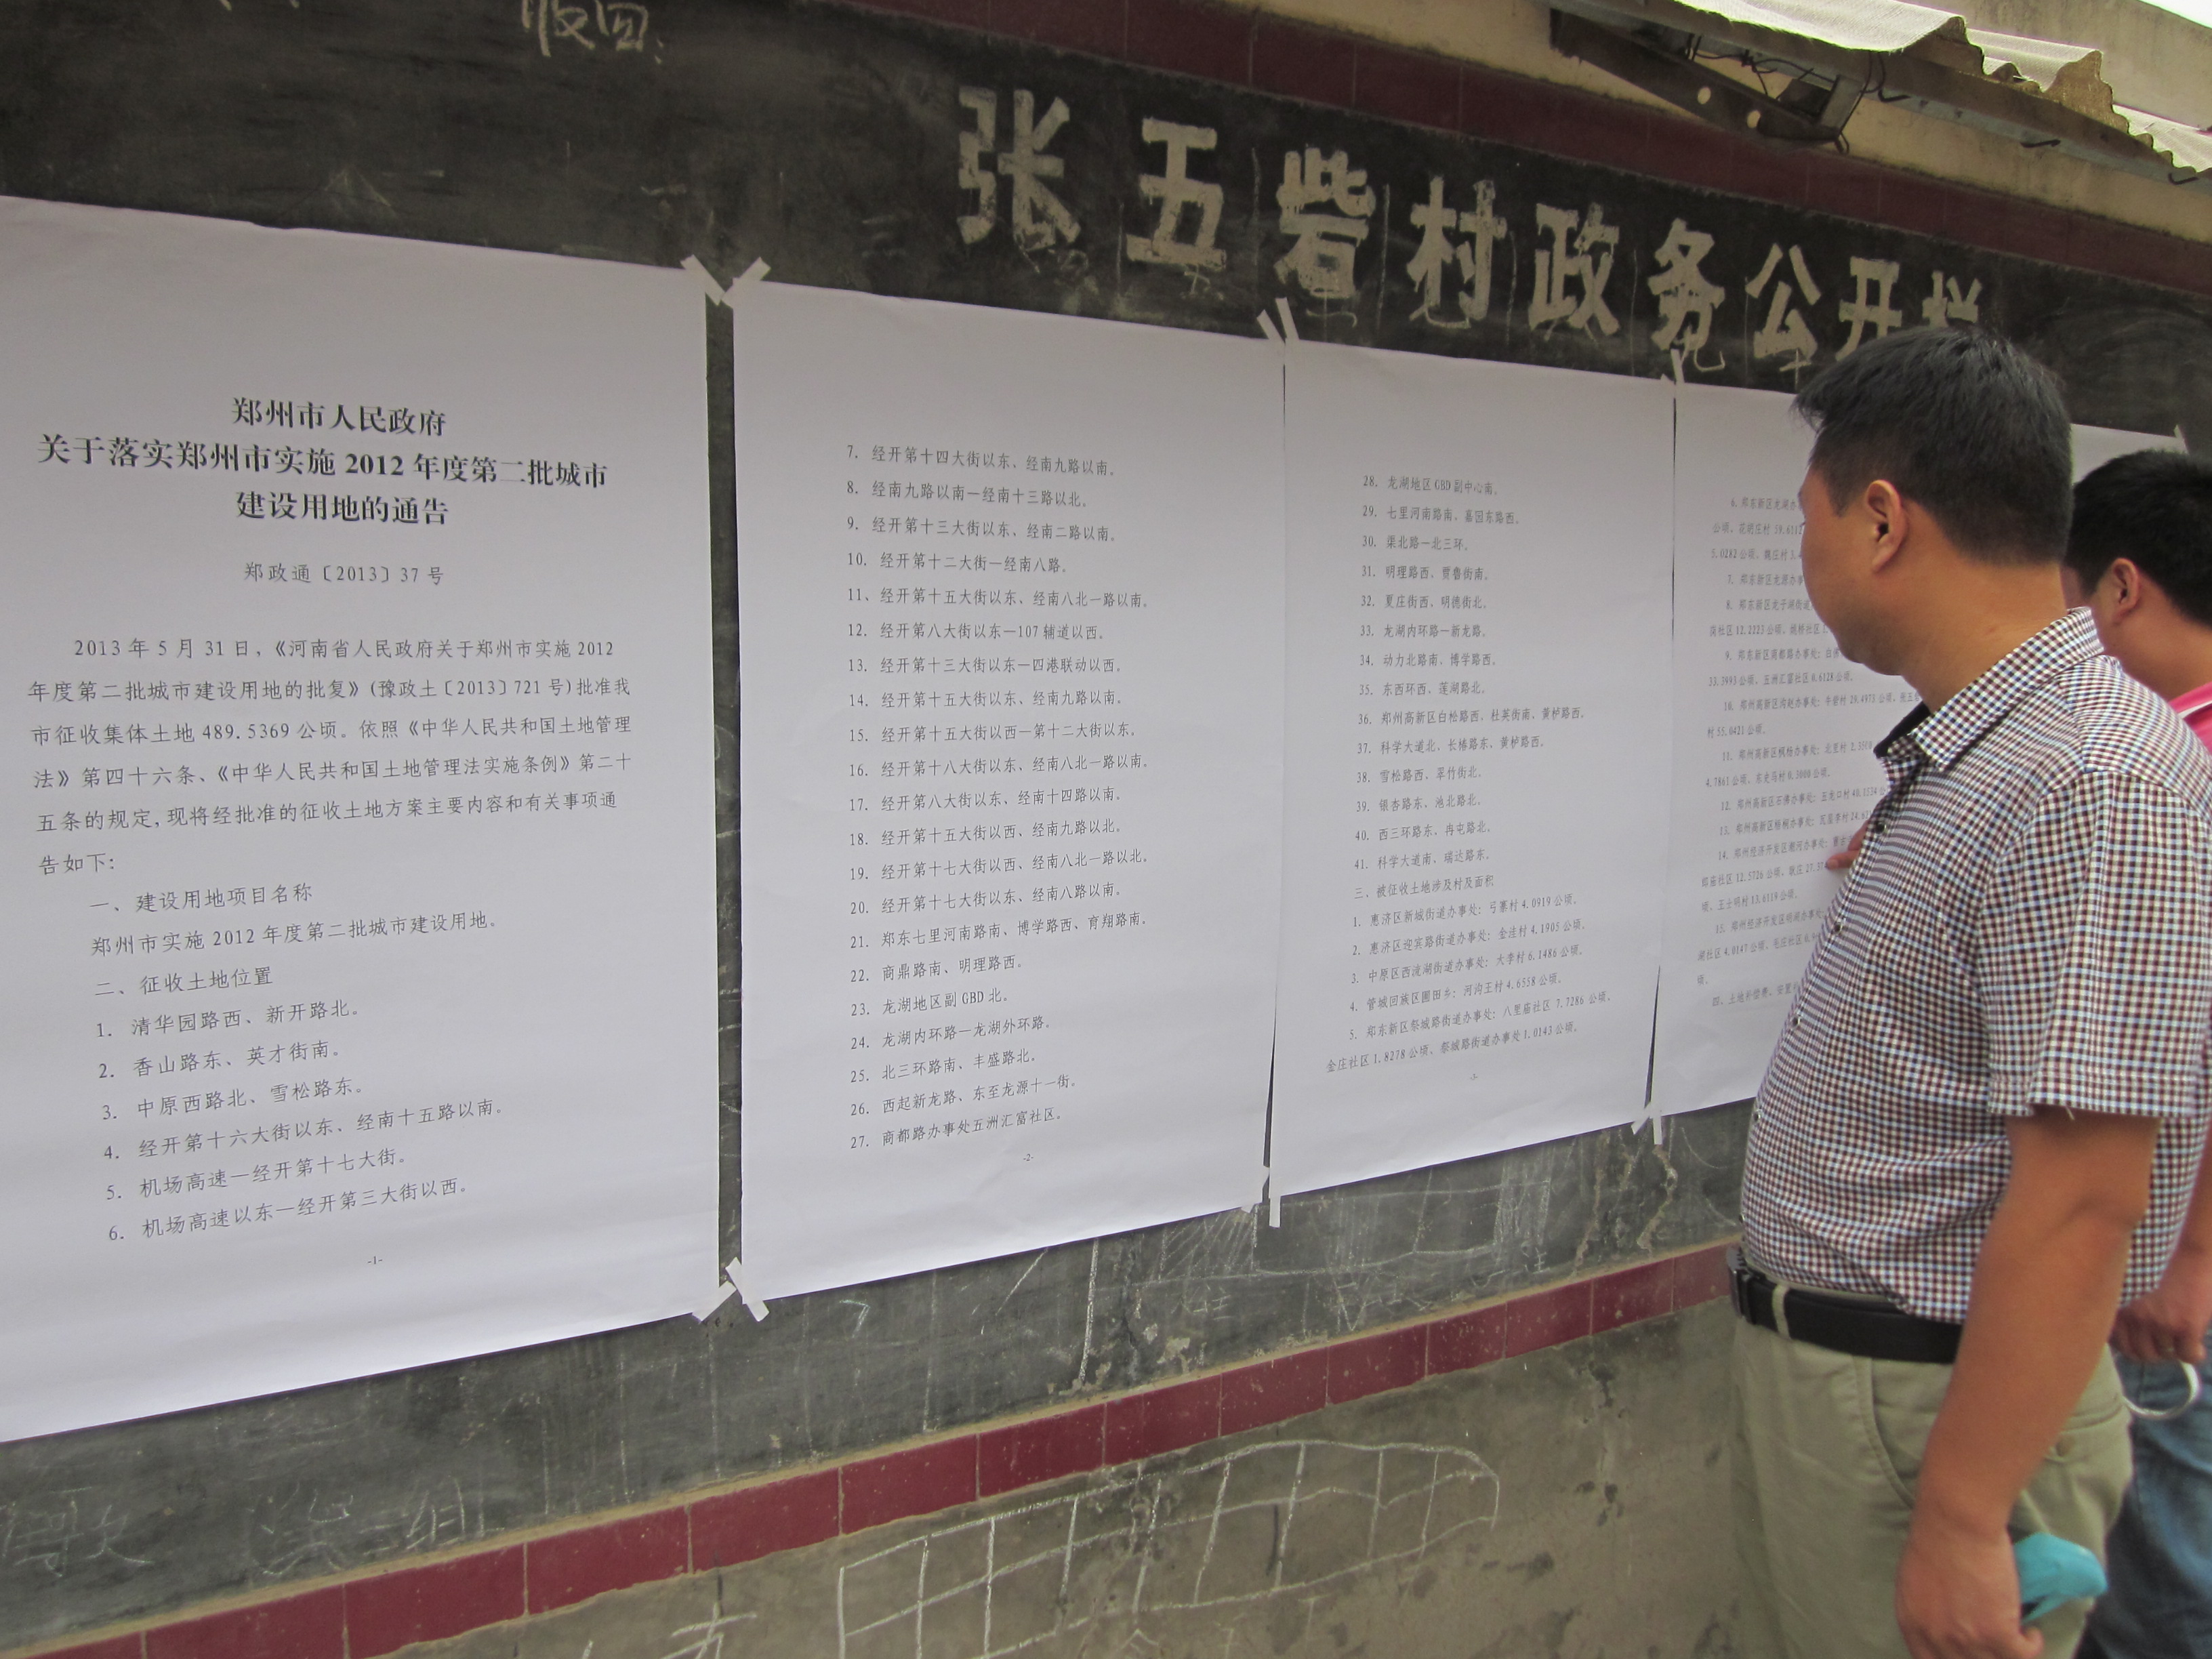 张五砦村政务公开栏
郑州市人民政府
关于落实郑州市实施 2012 年度第二批城市
建设用地的通告
郑政通〔2013〕37 号
2013 年 5 月 31 日，《河南省人民政府关于郑州市实施 2012
年度第二批城市建设用地的批复》(豫政土〔2013〕721 号)批准我
市征收集体土地 489.5369 公顷。依照《中华人民共和国土地管理
法》第四十六条、《中华人民共和国土地管理法实施条例》第二十
五条的规定,现将经批准的征收土地方案主要内容和有关事项通
告如下:
一、建设用地项目名称
郑州市实施 2012 年度第二批城市建设用地。
二、征收土地位置
1. 清华园路西、新开路北。
2. 香山路东、英才街南。
3. 中原西路北、雪松路东。
4. 经开第十六大街以东、经南十五路以南。
5. 机场高速—经开第十七大街。
6. 机场高速以东—经开第三大街以西。
-1-
7. 经开第十四大街以东、经南九路以南。
8. 经南九路以南—经南十三路以北。
9. 经开第十三大街以东、经南二路以南。
10. 经开第十二大街—经南八路。
11、经开第十五大街以东、经南八北一路以南。
12. 经开第八大街以东—107 辅道以西。
13. 经开第十三大街以东—四港联动以西。
14. 经开第十五大街以东、经南九路以南。
15. 经开第十五大街以西—第十二大街以东。
16. 经开第十八大街以东、经南八北一路以南。
17. 经开第八大街以东、经南十四路以南。
18. 经开第十五大街以西、经南九路以北。
19. 经开第十七大街以西、经南八北一路以北。
20. 经开第十七大街以东、经南八路以南。
21. 郑东七里河南路南、博学路西、育翔路南。
22. 商鼎路南、明理路西。
23. 龙湖地区副 CBD 北。
24. 龙湖内环路—龙湖外环路。
25. 北三环路南、丰盛路北。
26. 西起新龙路、东至龙源十一街。
27. 商都路办事处五洲汇富社区。
-2-
28. 龙湖地区 CBD 副中心南。
29. 七里河南路南、嘉园东路西。
30. 渠北路—北三环。
31. 明理路西、贾鲁街南。
32. 夏庄街西、明德街北。
33. 龙湖内环路—新龙路。
34. 动力北路南、博学路西。
35. 东西环西、莲湖路北。
36. 郑州高新区白松路西、杜英街南、黄栌路西。
37. 科学大道北、长椿路东、黄栌路西。
38. 雪松路西、翠竹街北。
39. 银杏路东、池北路北。
40. 西三环路东、冉屯路北。
41. 科学大道南、瑞达路东。
三、被征收土地涉及村及面积
1. 惠济区新城街道办事处：弓寨村 4.0919 公顷。
2. 惠济区迎宾路街道办事处：金洼村 4.1905 公顷。
3. 中原区西流湖街道办事处：大李村 6.1486 公顷。
4. 管城回族区圃田乡：河沟王村 4.6558 公顷。
5. 郑东新区祭城路街道办事处：八里庙社区 7.7286 公顷、
金庄社区 1.8278 公顷、祭城路街道办事处 1.0143 公顷。
-3-
6. 郑东新区龙湖办
公顷、花胡庄村
5.0282 公顷、姚庄村
7. 郑东新区龙源办事
8. 郑东新区龙子湖街道
岗社区 12.2223 公顷、姚桥社区
9. 郑东新区商都路办事处：
33.3993 公顷、五洲汇富社区 0.6128 公顷。
10. 郑州高新区沟赵办事处：牛砦村 29.4975 公顷、张五
村 55.0421 公顷。
11. 郑州高新区枫杨办事处：北里村
4.7861 公顷、东史马村 0.3000 公顷。
12. 郑州高新区石佛办事处：五龙口村
13. 郑州高新区梧桐办事处：瓦屋李村
14. 郑州经济开发区潮河办事处：
郎庙社区 12.5726 公顷、耿庄
顷、王士明村 13.6119 公顷。
15. 郑州经济开发区明湖办事处：
湖社区 4.0147 公顷、
顷。
四、土地补偿费、安置